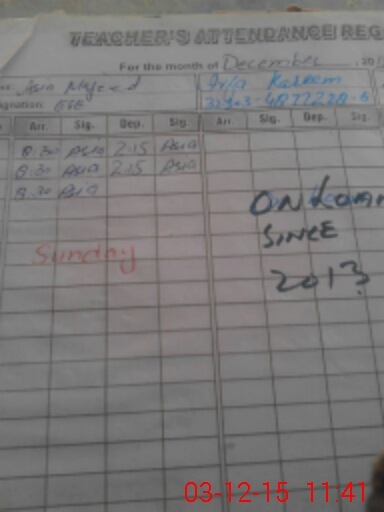 TEACHER'S ATTENDANCE REG
For the month of December , 201
Asia Majeed
gnation: ESE
Kaneem
Arr. Sig. Dep. Sig. Arr. Sig. Dep. Sig.
8.30 Asia 2.15 Asia
8.30 Asia 2.15 Asia
8.30 Asia
ON
SINCE
Sunday
2013
03-12-15 11.41